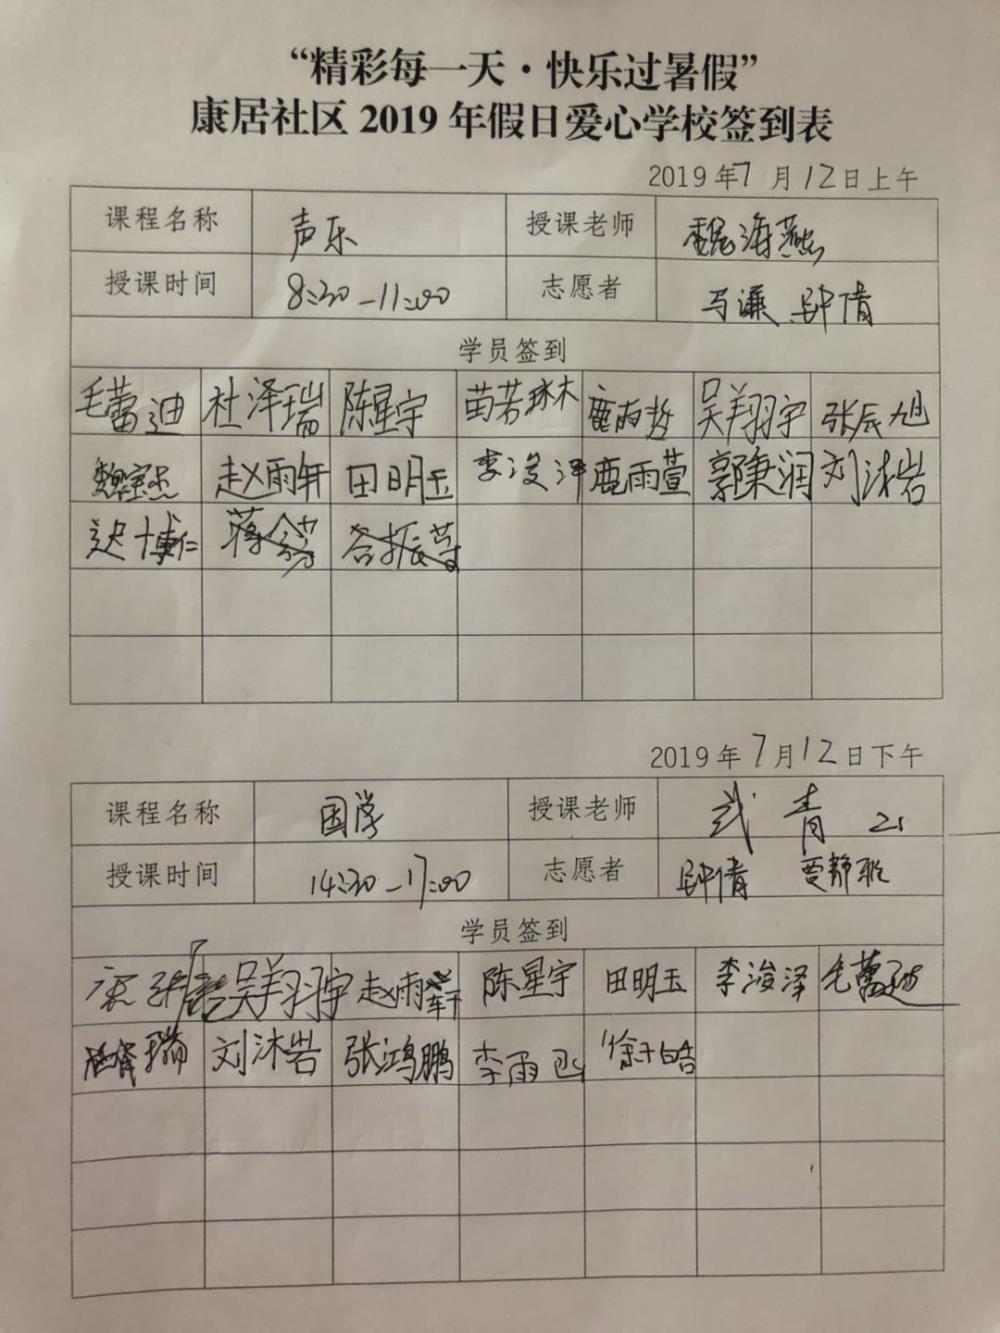 “精彩每一天·快乐过暑假”
康居社区 2019 年假日爱心学校签到表
2019 年 7 月 12 日上午
课程名称 声乐 授课老师 魏海燕
授课时间 8:30-11:00 志愿者 马谦 钟倩
学员签到
毛蕾迪 杜泽瑞 陈星宇 苗芳琳 鹿雨哲 吴翔宇 张辰旭
魏宝杰 赵雨轩 田明玉 李浚泽 鹿雨萱 郭秉润 刘沐岩
迟博仁 谷振
2019 年 7 月 12 日下午
课程名称 国学 授课老师 武青
授课时间 14:30-17:00 志愿者 钟倩 贾静
学员签到
吴翔宇 赵雨轩 陈星宇 田明玉 李浚泽 毛蕾迪
瑞 刘沐岩 张鸿鹏 李雨 徐子皓